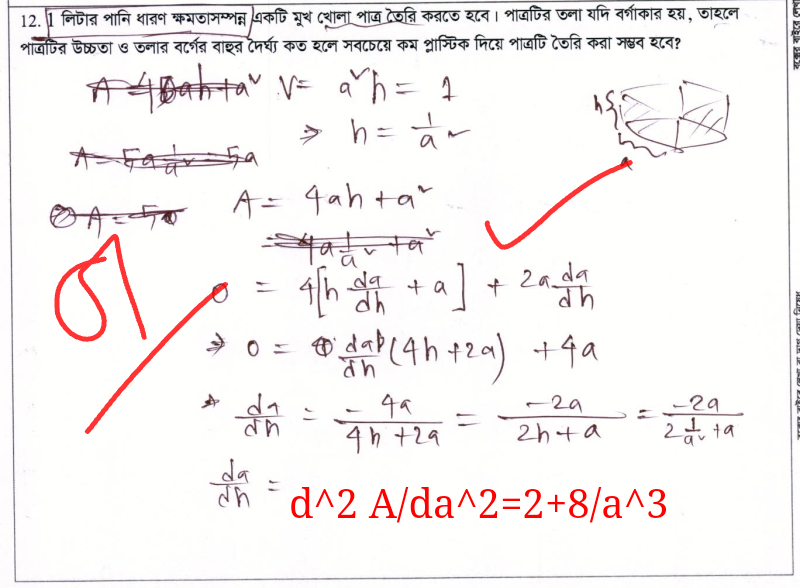 12. 1 লিটার পানি ধারণ ক্ষমতাসম্পন্ন একটি মুখ খোলা পাত্র তৈরি করতে হবে। পাত্রটির তলা যদি বর্গাকার হয়, তাহলে
পাত্রটির উচ্চতা ও তলার বর্গের বাহুর দৈর্ঘ্য কত হলে সবচেয়ে কম প্লাস্টিক দিয়ে পাত্রটি তৈরি করা সম্ভব হবে?
V = a²h = 1
⇒ h = 1/a²
h
a
A = 4ah + a²
= 4a 1/a² + a²
0 = 4[h da/dh + a] + 2a da/dh
⇒ 0 = da/dh (4h+2a) + 4a
da/dh = -4a/(4h+2a) = -2a/(2h+a) = -2a/(2 1/a² + a)
da/dh =
d^2 A/da^2=2+8/a^3